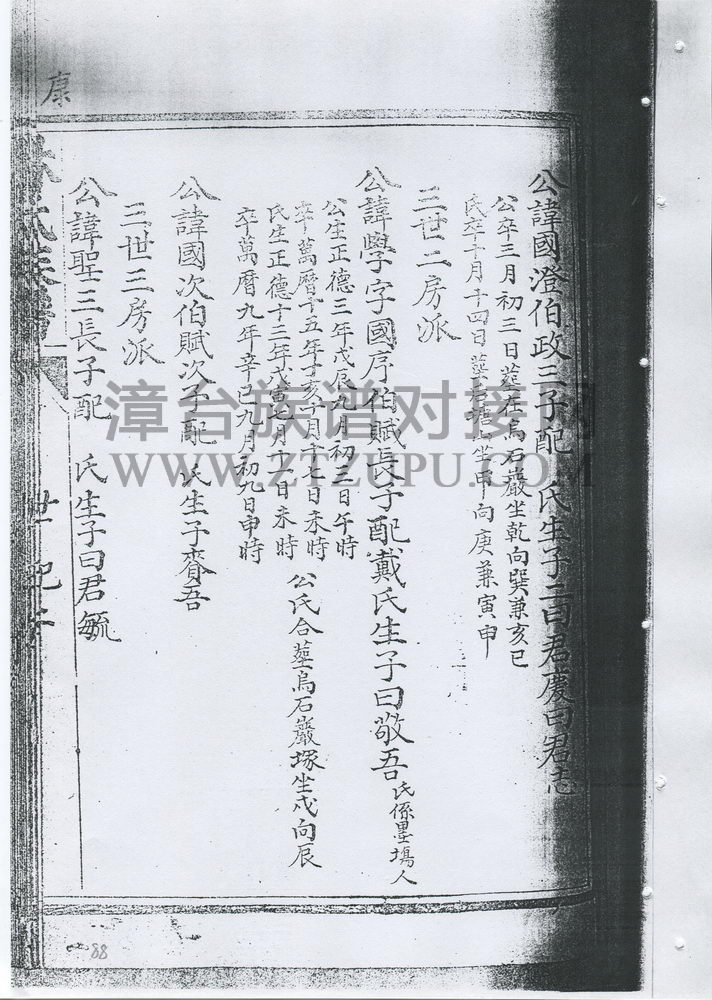 公諱國澄伯政三子配 氏生子二曰君慶曰君志
公卒三月初三日葬在烏石巖坐乾向巽兼亥巳
氏卒十月十四日葬 坐甲向庚兼寅申
三世二房派
公諱學字國序伯賦長子配戴氏生子曰敬吾 氏係墨場人
公生正德三年戊辰九月初三日午時
卒萬曆十五年丁亥十月十七日未時
氏生正德十三年戊寅 月十一日未時
卒萬曆九年辛巳九月初九日申時
公氏合葬烏石巖塚坐戌向辰
公諱國次伯賦次子配 氏生子賚吾
三世三房派
公諱聖三長子配 氏生子曰君毓
氏族譜
世紀
康
88
漳台族谱对接网
WWW.ZTZUPU.COM